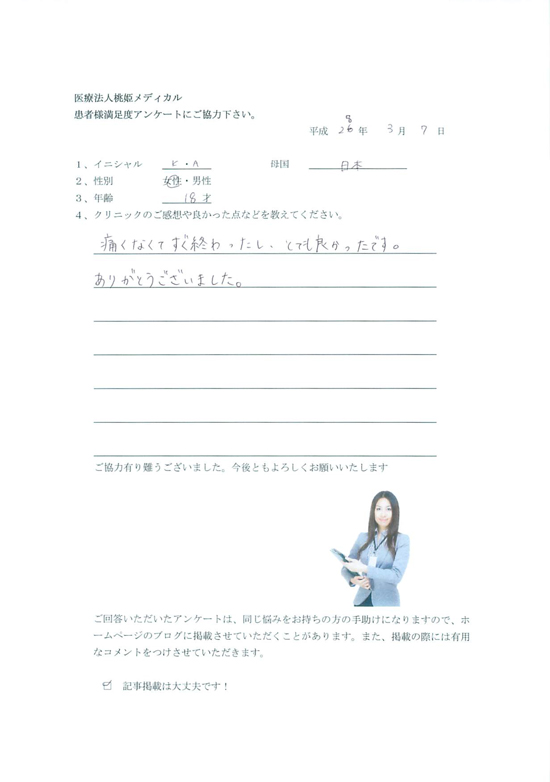 医療法人桃姫メディカル
患者様満足度アンケートにご協力下さい。
平成 28 年 3 月 7 日
1、イニシャル K・A 母国 日本
2、性別 女性・男性
3、年齢 18才
4、クリニックのご感想や良かった点などを教えてください。
痛くなくてすぐ終わったし、とても良かったです。
ありがとうございました。
ご協力有り難うございました。今後ともよろしくお願いいたします
ご回答いただいたアンケートは、同じ悩みをお持ちの方の手助けになりますので、ホ
ームページのブログに掲載させていただくことがあります。また、掲載の際には有用
なコメントをつけさせていただきます。
☑ 記事掲載は大丈夫です！